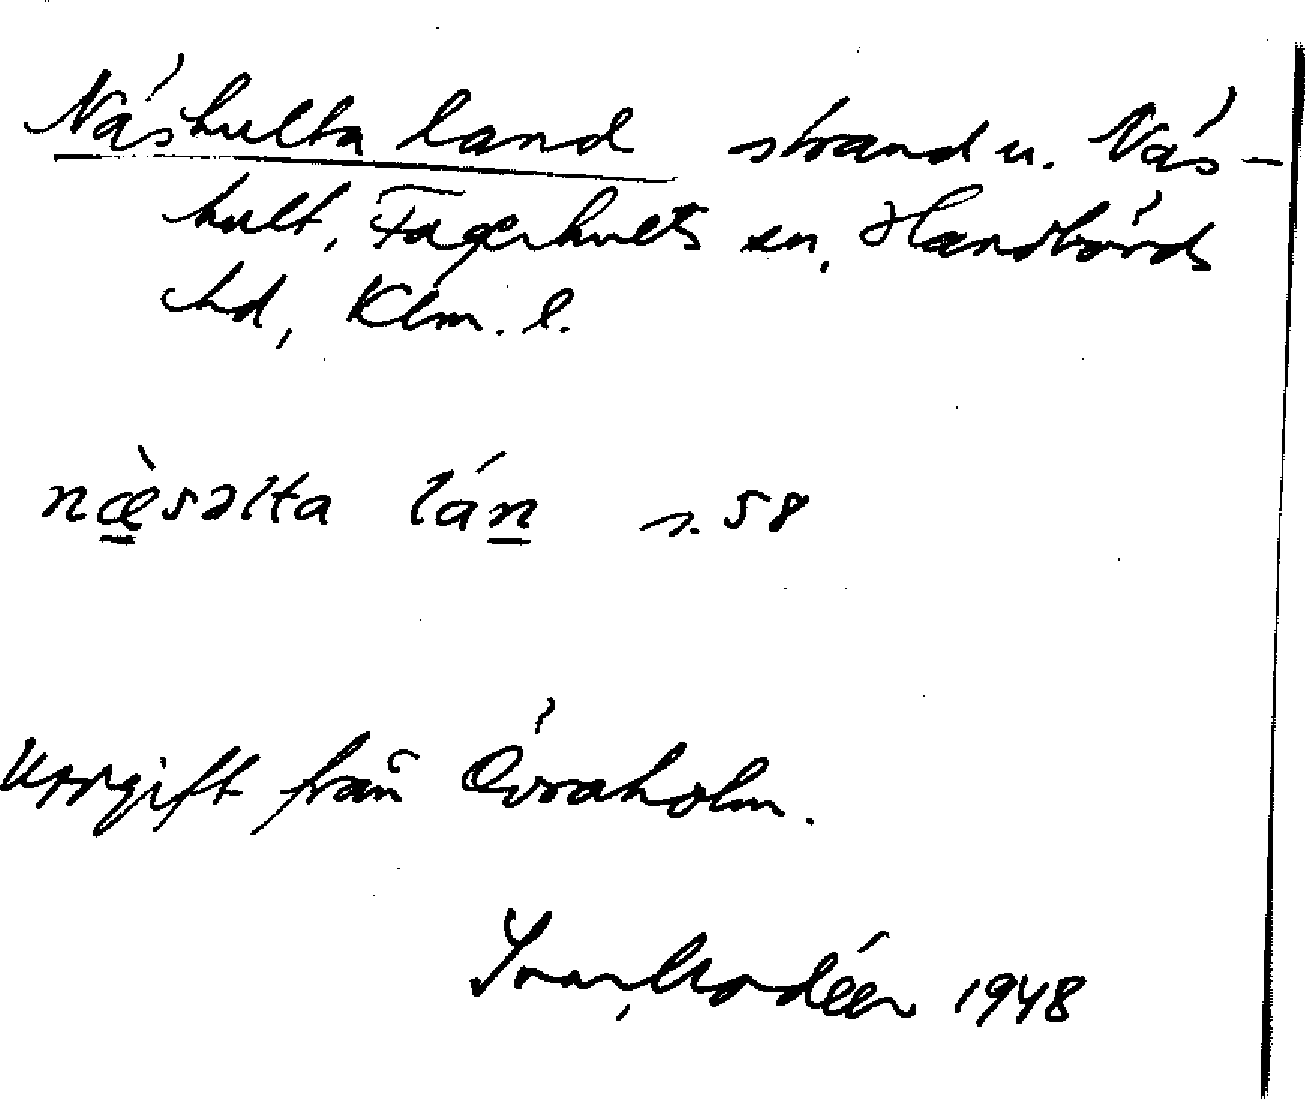 Näshulta land strand u. Näs-
hult, Fagerhults sn, Handbörds
hd, Klm. l.
næ̀səlta lán s. 58
Uppgift från Övraholm.
Ivar Modéer 1948